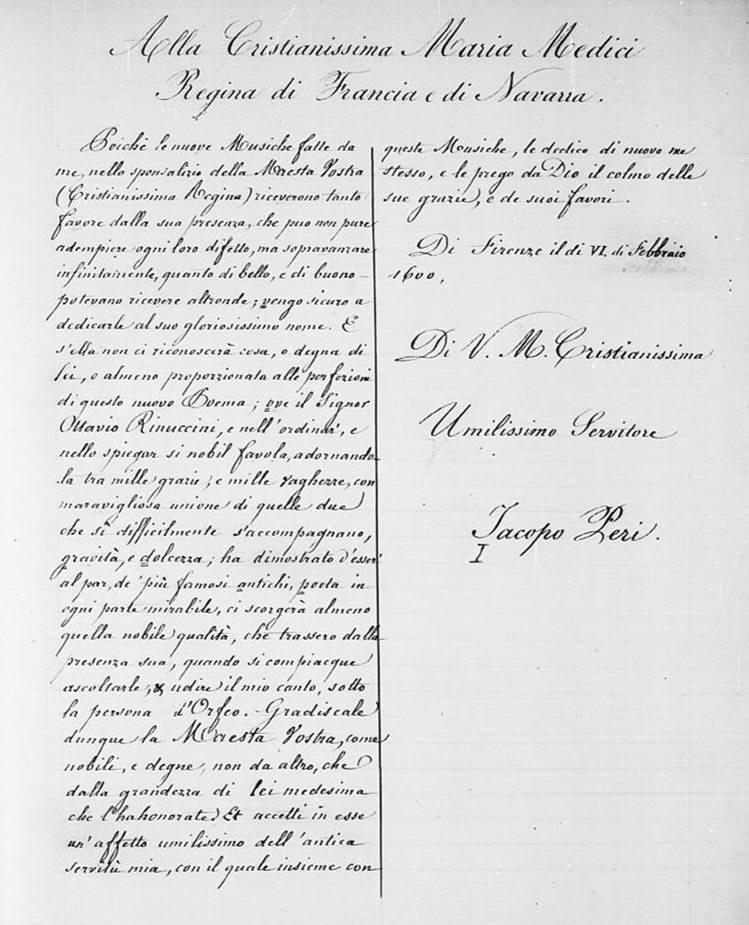 Alla Cristianissima Maria Medici
Regina di Francia e di Navarra.
Poichè le nuove Musiche fatte da
me, nello sponsalizio della Maesta Vostra
(Cristianissima Regina) riceverono tanto
favore dalla sua presenza, che puo non pure
adempiere ogni loro difetto, ma sopravanzare
infinitamente, quanto di bello, e di buono
potevano ricevere altronde; vengo sicuro a
dedicarle al suo gloriosissimo nome. E
s'ella non ci riconoscerà cosa, o degna di
lei, o almeno proporzionata alle perfezioni
di questo nuovo Poema; ove il Signor
Ottavio Rinuccini, e nell'ordinar', e
nello spiegar si nobil favola, adornando-
la tra mille grazie, e mille vaghezze, con
maravigliosa unione di quelle due
che sì difficilmente s'accompagnano,
gravità, e dolcezza; ha dimostrato d'esser'
al par, de' più famosi antichi, poeta in
ogni parte mirabile, ci scorgerà almeno
quella nobile qualità, che trassero dalla
presenza sua, quando si compiacque
ascoltarle, & udire il mio canto, sotto
la persona d'Orfeo. Gradiscale
dunque la Maesta Vostra, come
nobili, e degne, non da altro, che
dalla grandezza di lei medesima
che l'ha honorate) Et accetti in esse
un' affetto umilissimo dell'antica
servitù mia, con il quale insieme con
queste Monsiche, le dedico di nuovo me
stesso, e le prego da Dio il colmo delle
sue grazie, e de suoi favori.
Di Firenze il di VI. di Febbraio
1600,
Di V. M. Cristianissima
Umilissimo Servitore
Iacopo Peri.
I